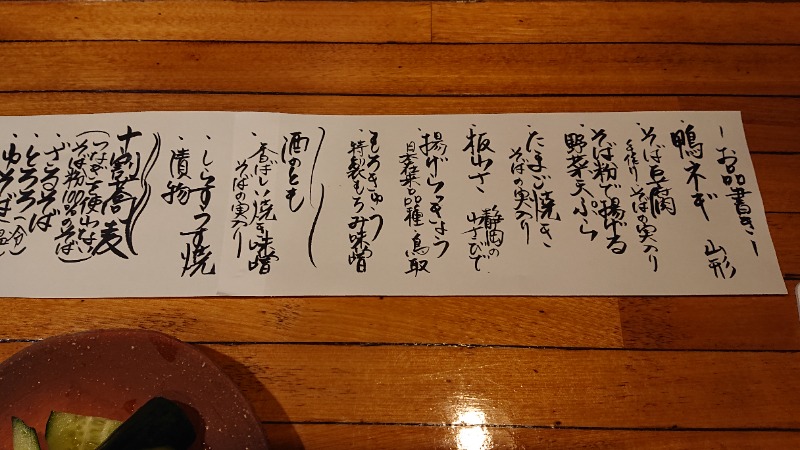 ーお品書きー
・鴨ネギ 山形
・そば豆腐
手作り そばの実入り
・そば粉で揚げる
野菜天ぷら
・たまご焼き
そばの実入り
・板わさ 静岡の
わさびで
・揚げらっきょう
日本在来品種 鳥取
・もろきゅう
特製もろみ味噌
酒のとも
・香ばしい焼き味噌
そばの実入り
・しらすうす焼
・漬物
十割蕎麦
(つなぎを使わない
そば粉100%のそば)
・ざるそば
・とろろ(冷)
・ゆそば(温)